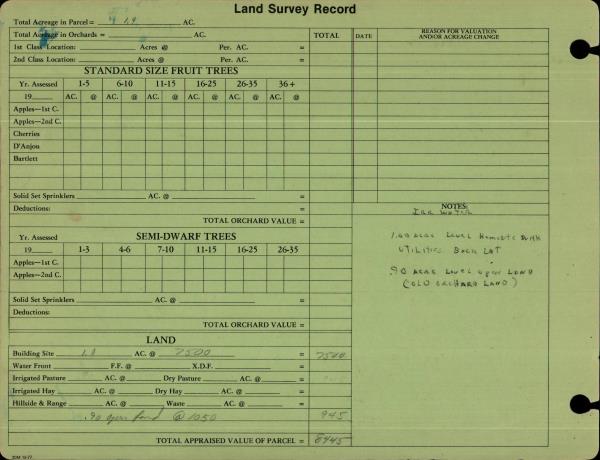 Land Survey Record
Total Acreage in Parcel = 1.9 AC.
Total Acreage in Orchards = AC. TOTAL DATE REASON FOR VALUATION AND/OR ACREAGE CHANGE
1st Class Location: Acres @ Per. AC. =
2nd Class Location: Acres @ Per. AC. =
STANDARD SIZE FRUIT TREES
Yr. Assessed 1-5 6-10 11-15 16-25 26-35 36 +
19 AC. @ AC. @ AC. @ AC. @ AC. @ AC. @
Apples—1st C.
Apples—2nd C.
Cherries
D'Anjou
Bartlett
Solid Set Sprinklers AC. @ =
Deductions: =
TOTAL ORCHARD VALUE =
SEMI-DWARF TREES
Yr. Assessed
19 1-3 4-6 7-10 11-15 16-25 26-35
Apples—1st C.
Apples—2nd C.
Solid Set Sprinklers AC. @ =
Deductions:
TOTAL ORCHARD VALUE =
LAND
Building Site 1.0 AC. @ 7500 = 7500
Water Front F.F. @ X.D.F. =
Irrigated Pasture AC. @ Dry Pasture AC. @ =
Irrigated Hay AC. @ Dry Hay AC. @ =
Hillside & Range AC. @ Waste AC. @ =
.90 open land @ 1050 945
TOTAL APPRAISED VALUE OF PARCEL = 8445
NOTES:
IRR WATER
1.00 ACRE LEVEL HOMESITE WITH
UTILITIES BACK LOT
.90 ACRE LEVEL OPEN LAND
(OLD ORCHARD LAND)